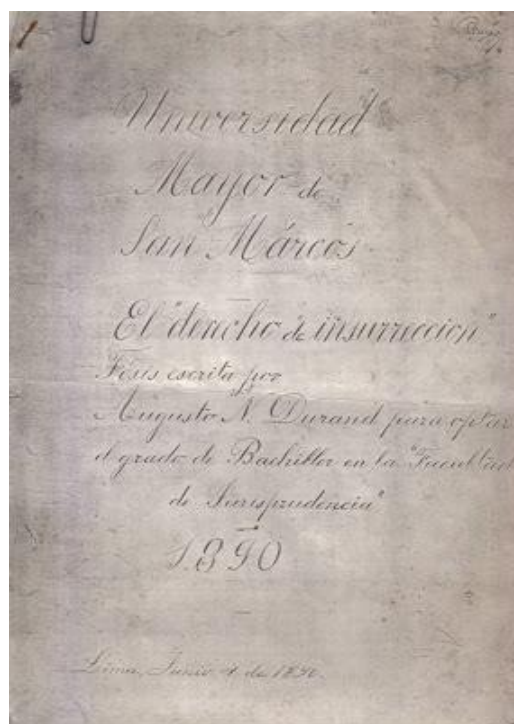 Universidad
Mayor de
San Márcos
El "derecho de insurreccion"
Tésis escrita por
Augusto N. Durand para optar
el grado de Bachiller en la "Facultad
de Jurisprudencia"
1890
Lima, Junio 4 de 1890.